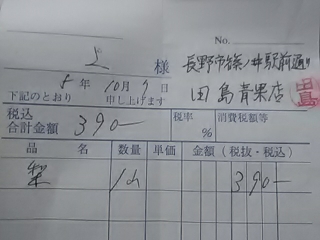 No.
上 様
長野市篠ノ井駅前通り
5年10月9日
下記のとおり 申し上げます
田島青果店
田島
税込合計金額 390-
税率 %
消費税額等
品名 数量 単価 金額(税抜・税込)
梨 1山 390-